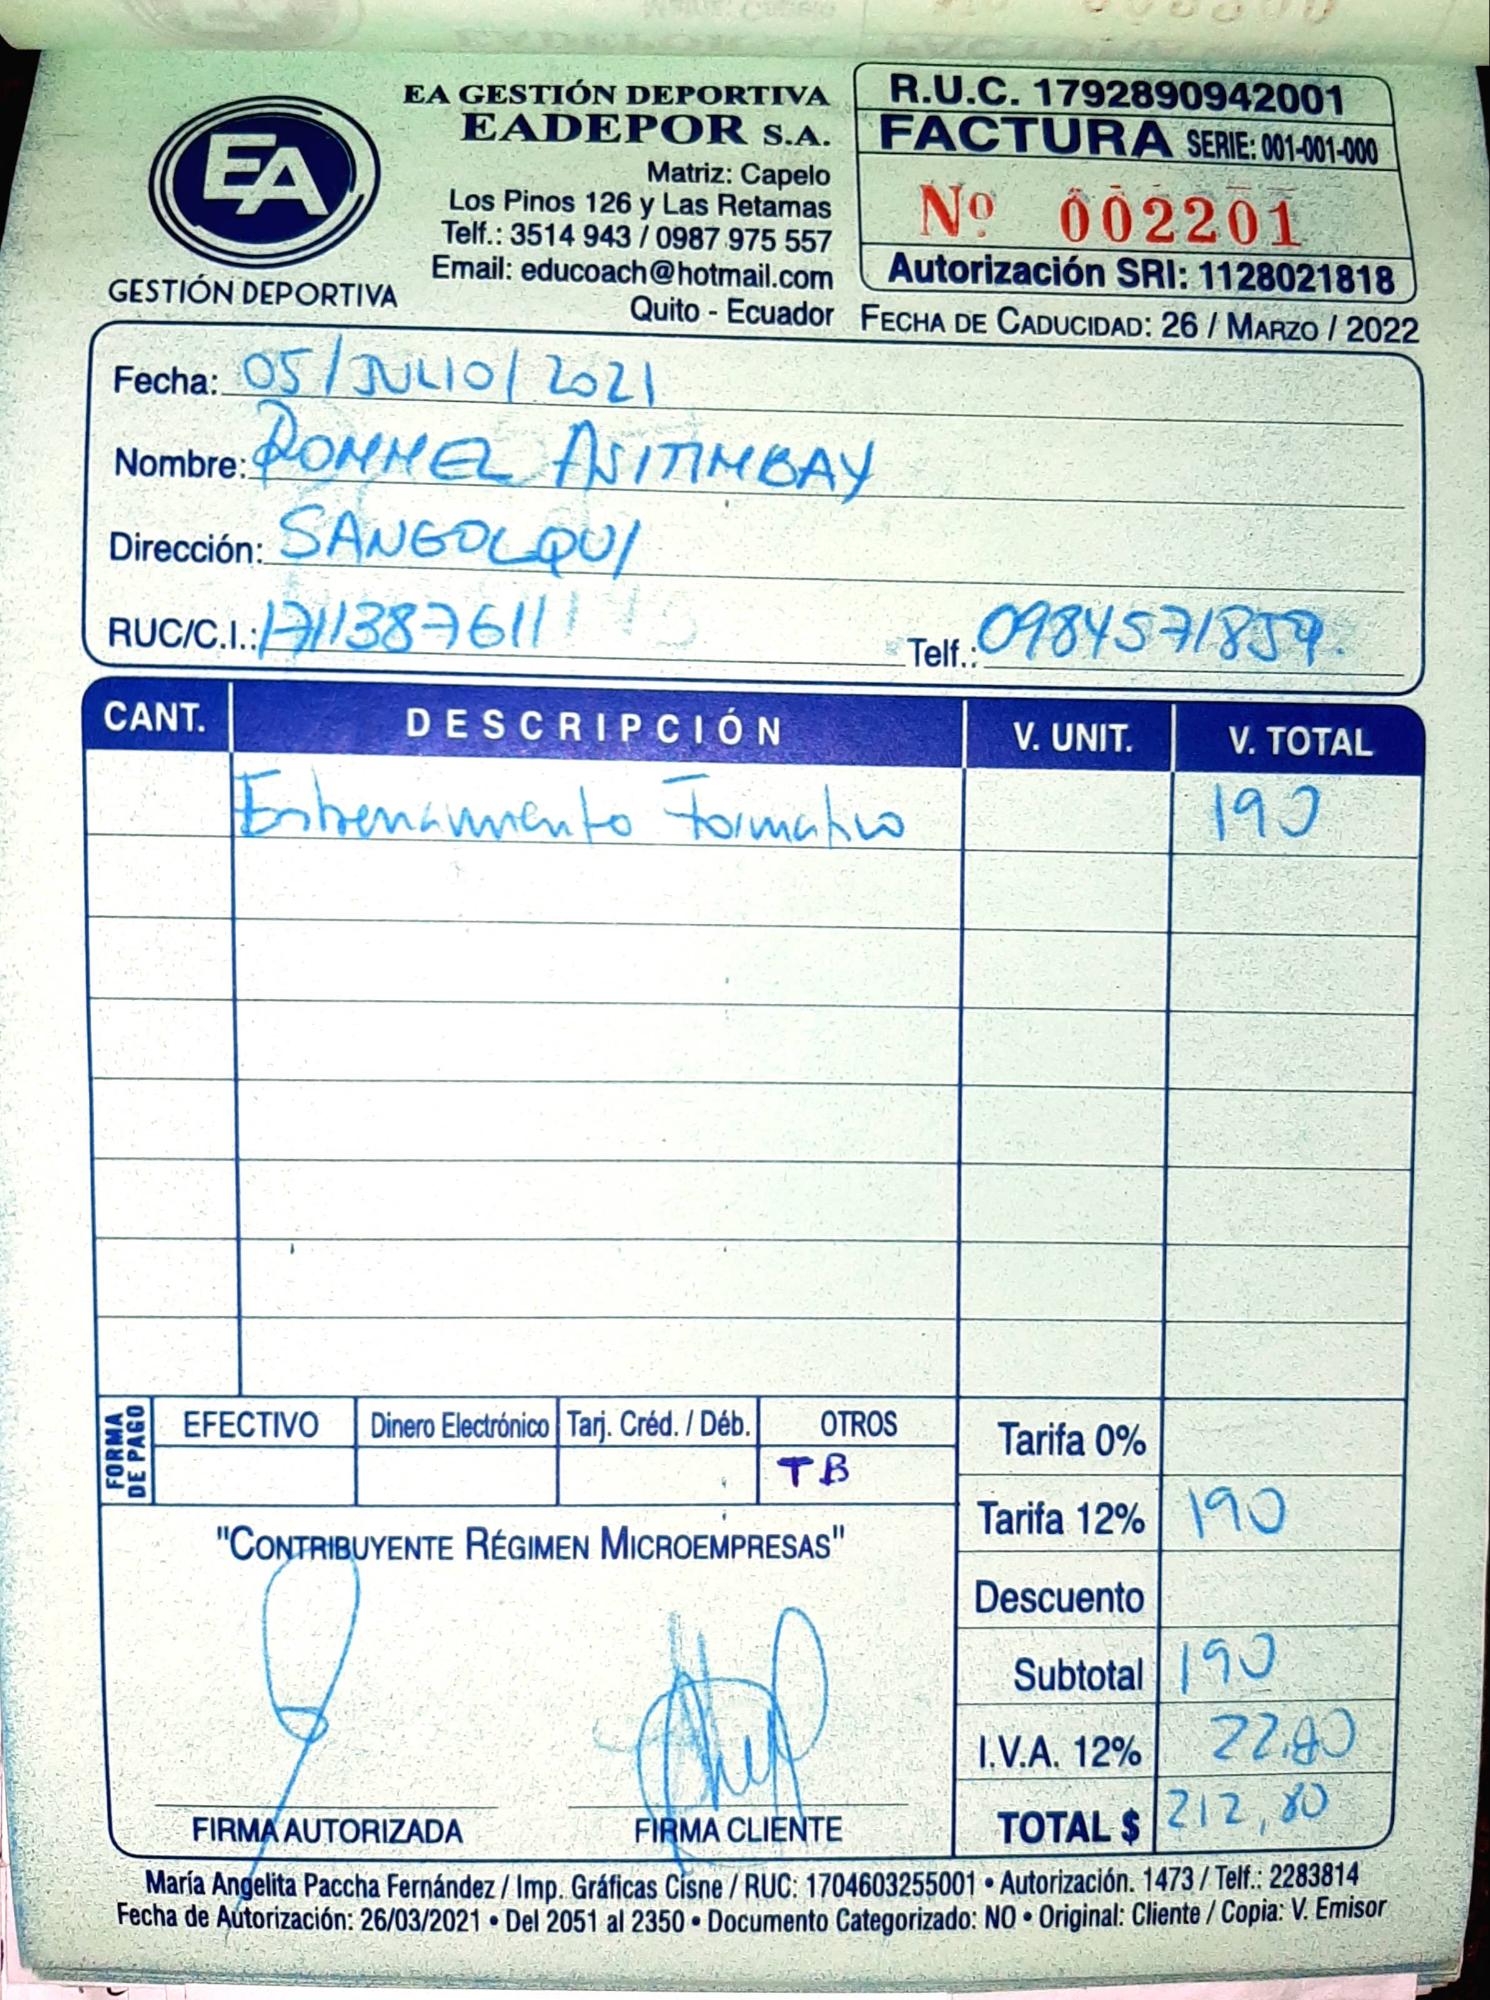 EA GESTIÓN DEPORTIVA
EADEPOR S.A.
Matriz: Capelo
Los Pinos 126 y Las Retamas
Telf.: 3514 943 / 0987 975 557
Email: educoach@hotmail.com
Quito - Ecuador
EA
GESTIÓN DEPORTIVA
R.U.C. 1792890942001
FACTURA SERIE: 001-001-000
Nº 002201
Autorización SRI: 1128021818
FECHA DE CADUCIDAD: 26 / MARZO / 2022
Fecha: 05/JULIO/2021
Nombre: ROMMEL ASITIMBAY
Dirección: SANGOLQUI
RUC/C.I.: 1711387611 Telf.: 0984571859.
CANT. DESCRIPCIÓN V. UNIT. V. TOTAL
Entrenamiento Formativo 190
FORMA DE PAGO
EFECTIVO Dinero Electrónico Tarj. Créd. / Déb. OTROS
TB
Tarifa 0%
Tarifa 12% 190
Descuento
Subtotal 190
I.V.A. 12% 22.80
TOTAL $ 212,80
"CONTRIBUYENTE RÉGIMEN MICROEMPRESAS"
FIRMA AUTORIZADA FIRMA CLIENTE
María Angelita Paccha Fernández / Imp. Gráficas Cisne / RUC: 1704603255001 • Autorización. 1473 / Telf.: 2283814
Fecha de Autorización: 26/03/2021 • Del 2051 al 2350 • Documento Categorizado: NO • Original: Cliente / Copia: V. Emisor